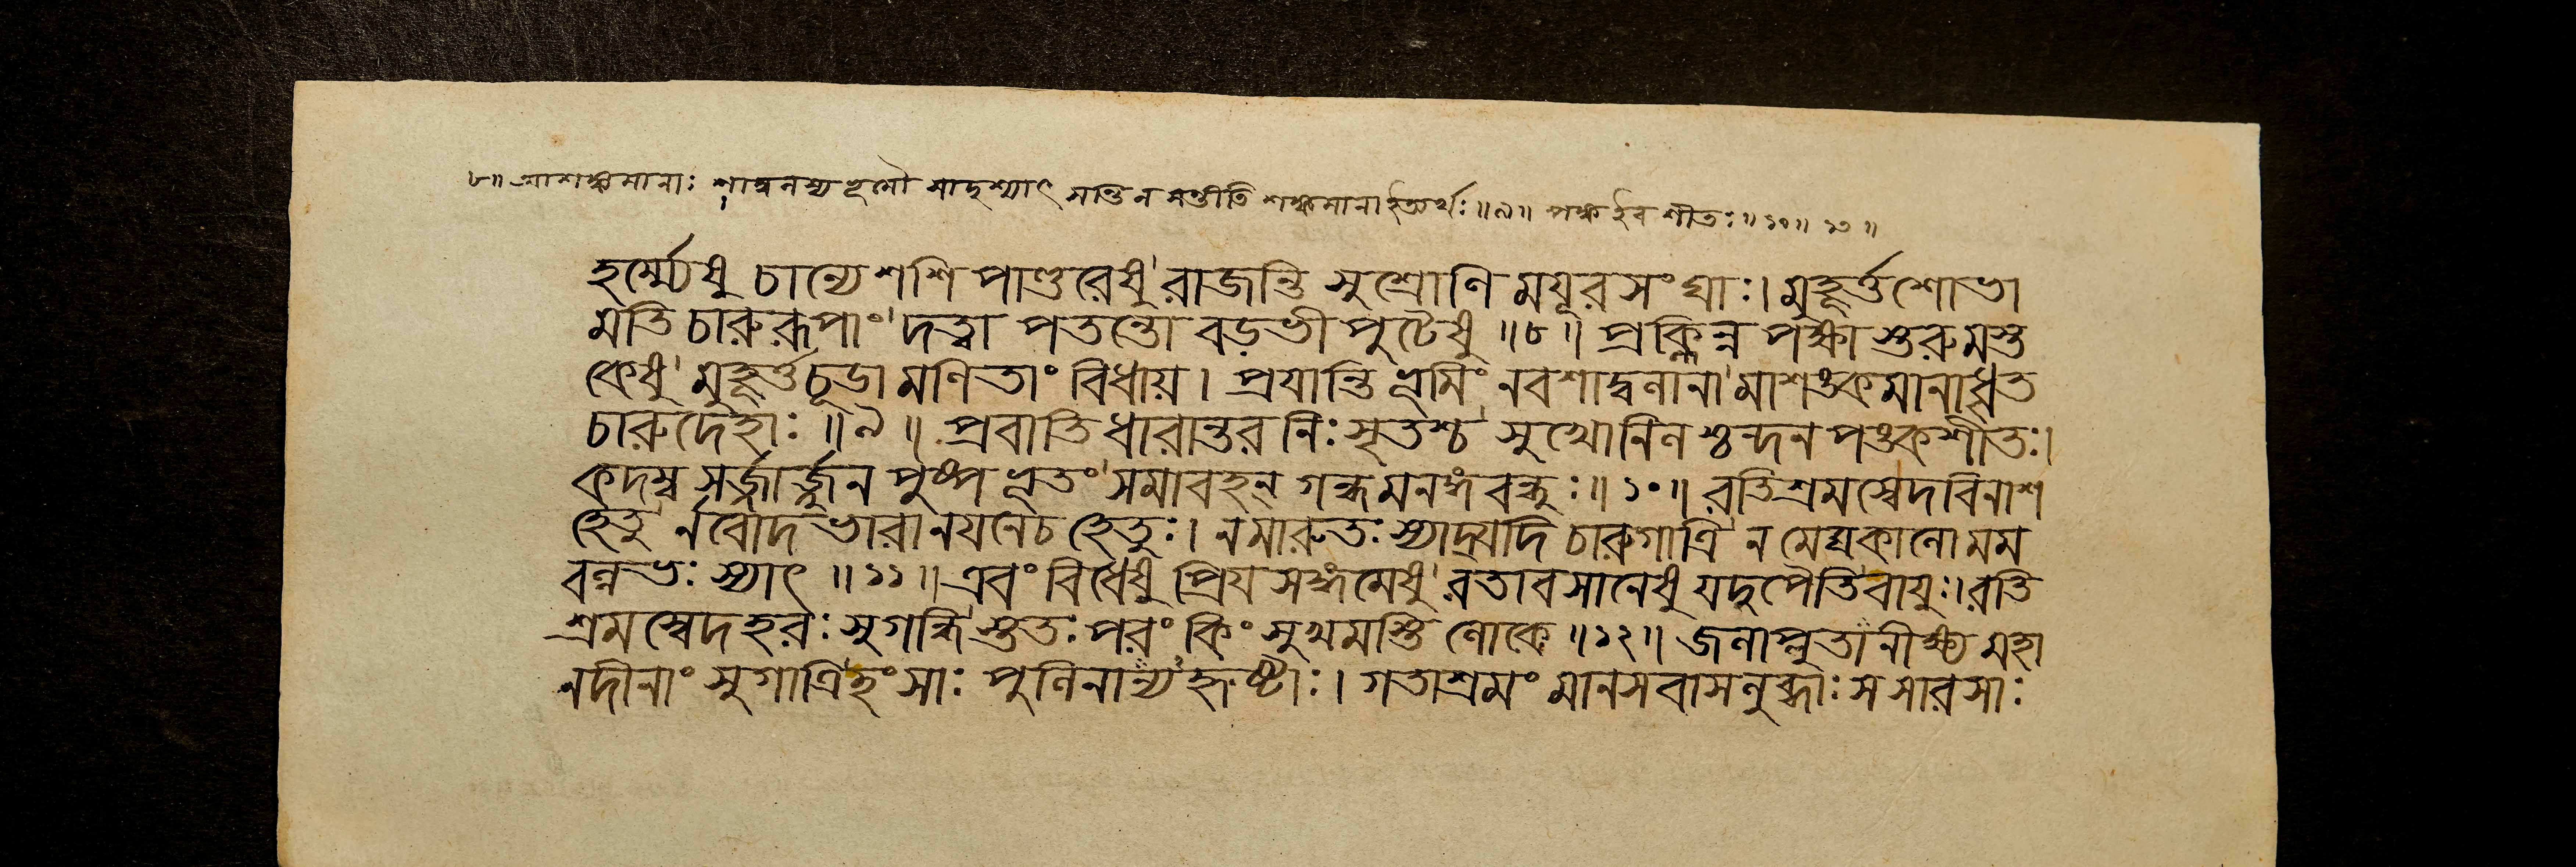 ৮॥ আশঙ্কমানাঃ শাদ্বলস্য ভূমৌ সাদৃশ্যাৎ সন্তি ন সন্তীতি শঙ্কমানা ইত্যর্থঃ॥৯॥ পঙ্ক ইব শীতঃ॥১০॥১১॥
হর্ম্ম্যেষু চান্যে শশি পাণ্ডরেষু' রাজন্তি সুশ্রোণি ময়ূরসংঘাঃ। মুহূর্ত্তশোভা
মতি চারুরূপাং' দত্বা পতন্তো বড়ভী পুটেষু ॥৮॥ প্রক্লিন্ন পক্ষা স্তরুমস্ত
কেষু' মুহূর্ত্তচূডামণিতাং বিধায়। প্রযান্তি ভূমিং নবশাদ্বলানা' মাশঙ্কমানাধৃত
চারুদেহাঃ ॥৯॥ প্রবাতি ধারান্তর নিঃসৃতশ্চ' সুখোনিল শ্চন্দন পঙ্কশীতঃ।
কদম্ব সর্জ্জার্জ্জুন পুষ্প ভূতং' সমাবহন্ গন্ধমনঙ্গবন্ধুঃ॥১০॥ রতিশ্রমস্বেদবিনাশ
হেতু' র্নবোদ ভারানযনেচ হেতুঃ। নমারুতঃ স্যাদ্যদি চারুগাত্রি' ন মেঘকালো মম
বল্লভঃ স্যাৎ ॥১১॥ এবং বিধেষু প্রিয সঙ্গমেষু' রতাবসানেষু যদুপৈতি বাযুঃ। রতি
শ্রম স্বেদহরঃ সুগন্ধি' স্ততঃ পরং কিং সুখমস্তি লোকে ॥১২॥ জলাপ্লুতানীক্ষ্য মহা
নদীনাং সুগাত্রি' হংসাঃ পুলিনান্য' হৃষ্টাঃ। গতাশ্রমং মানসবাসলুব্ধাঃ সসারসাঃ